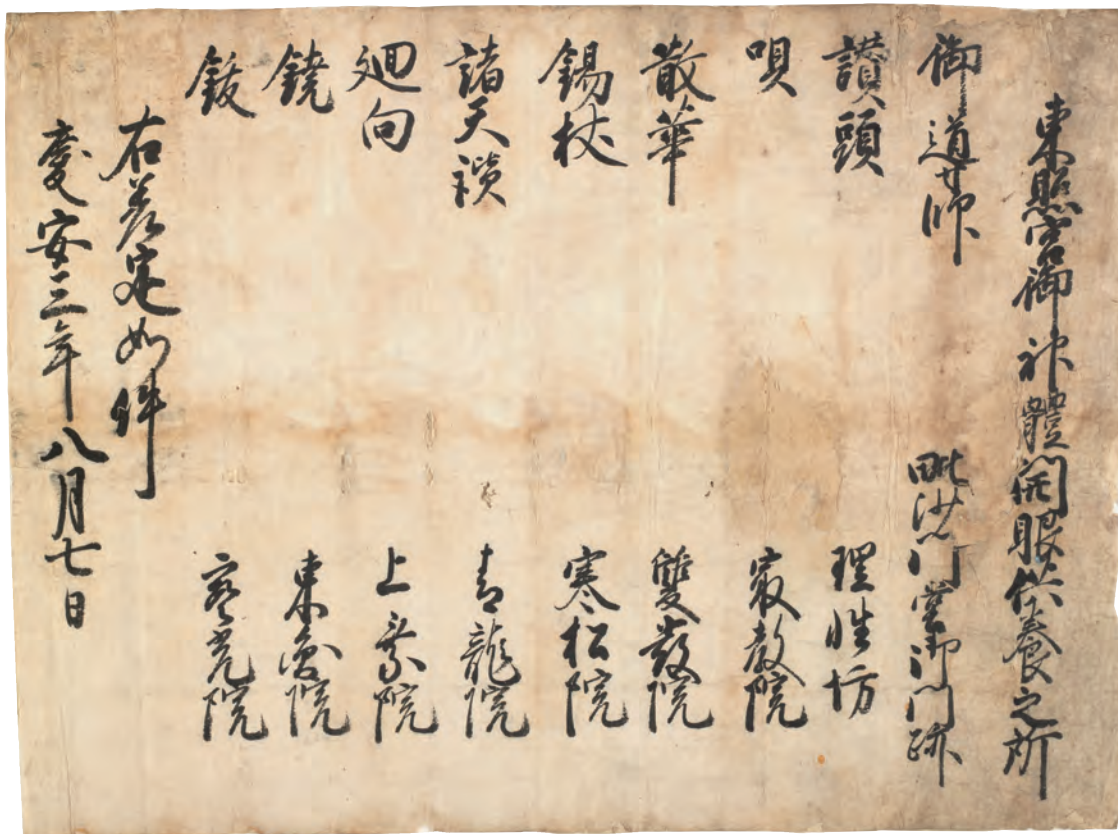 東照宮御神體開眼供養之所
御道師 毗沙門堂御門跡
讃頭 理性坊
唄 最教院
散華 雙嚴院
錫杖 寒松院
諸天讃 青龍院
廻向 上乗院
鐃 東漸院
鈸 寂光院
右差定如件
慶安三年八月七日